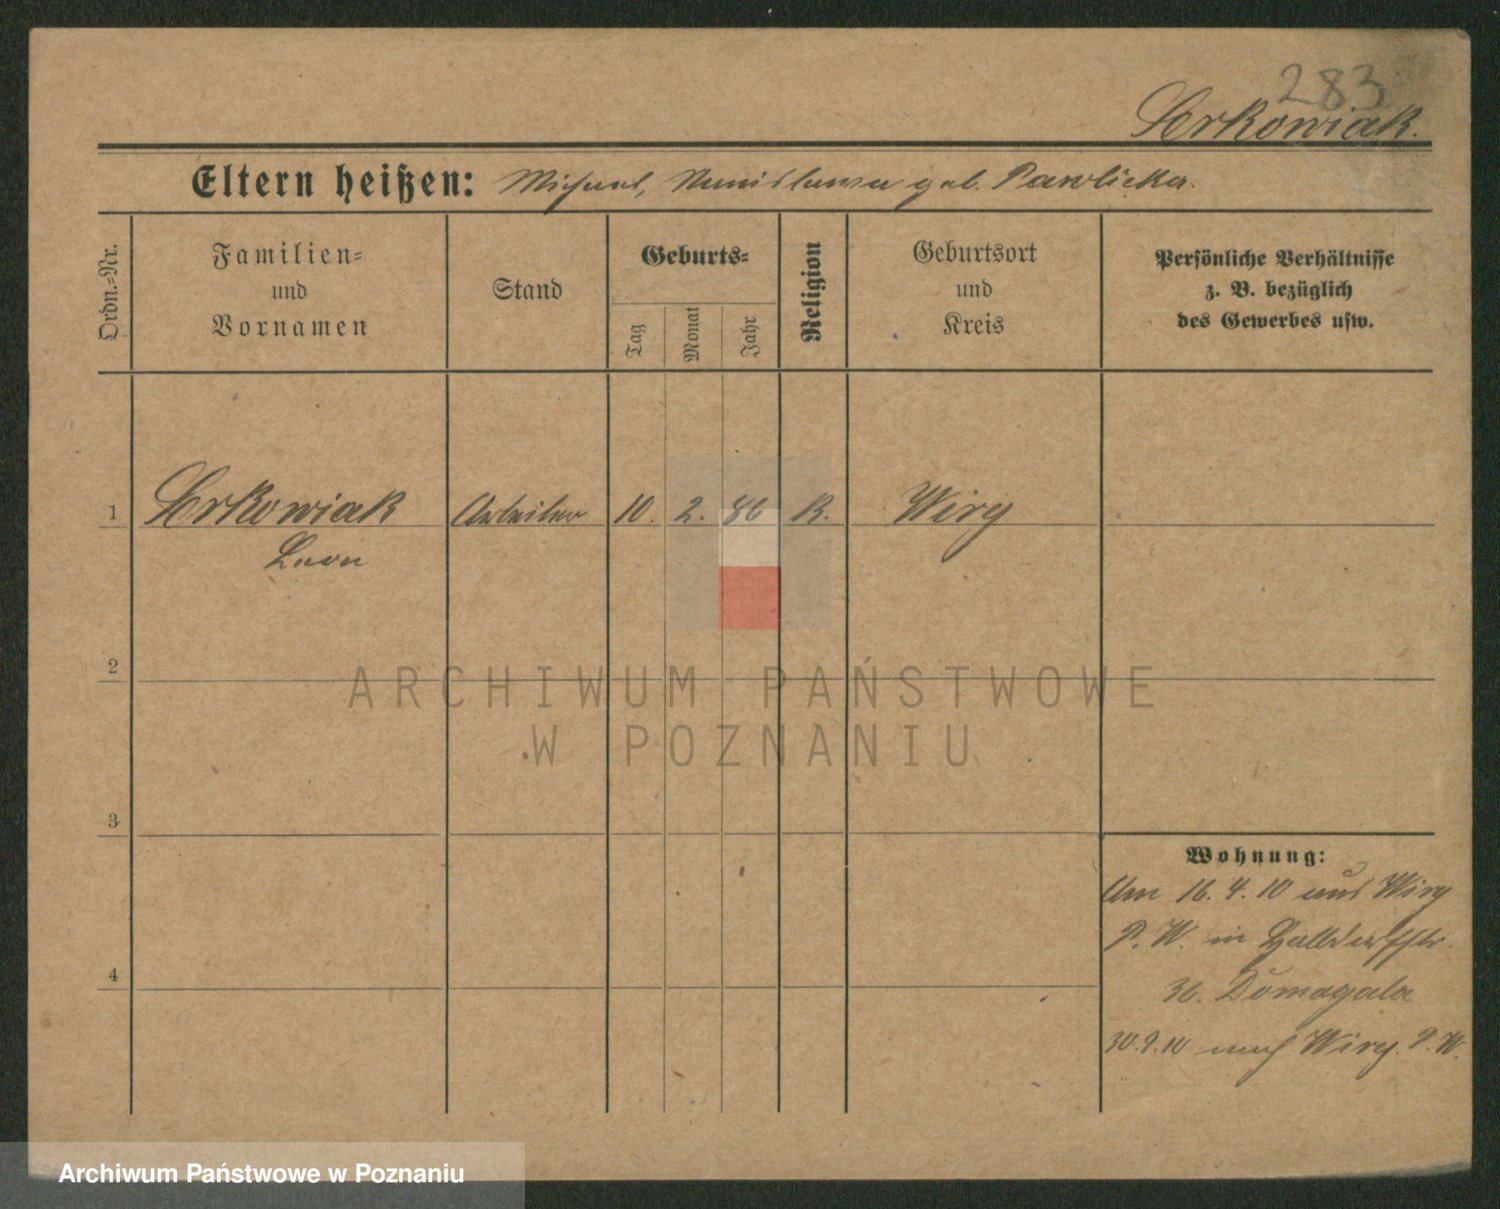 283
Lerkowiak.
Eltern heißen: Michael, Stanislawa geb. Pawlicka.
Ordn.-Nr.
Familien-
und
Vornamen
Stand
Geburts-
Tag
Monat
Jahr
Religion
Geburtsort
und
Kreis
Persönliche Verhältnisse
z. B. bezüglich
des Gewerbes usw.
1 Lerkowiak Arbeiter 10. 2. 86 K. Wiry
Leon
2
3
4
Wohnung:
Am 16. 4. 10 aus Wiry
P. W. in
36. Domagala
30.9.10 nach Wiry. P. W.
ARCHIWUM PAŃSTWOWE
W POZNANIU
Archiwum Państwowe w Poznaniu